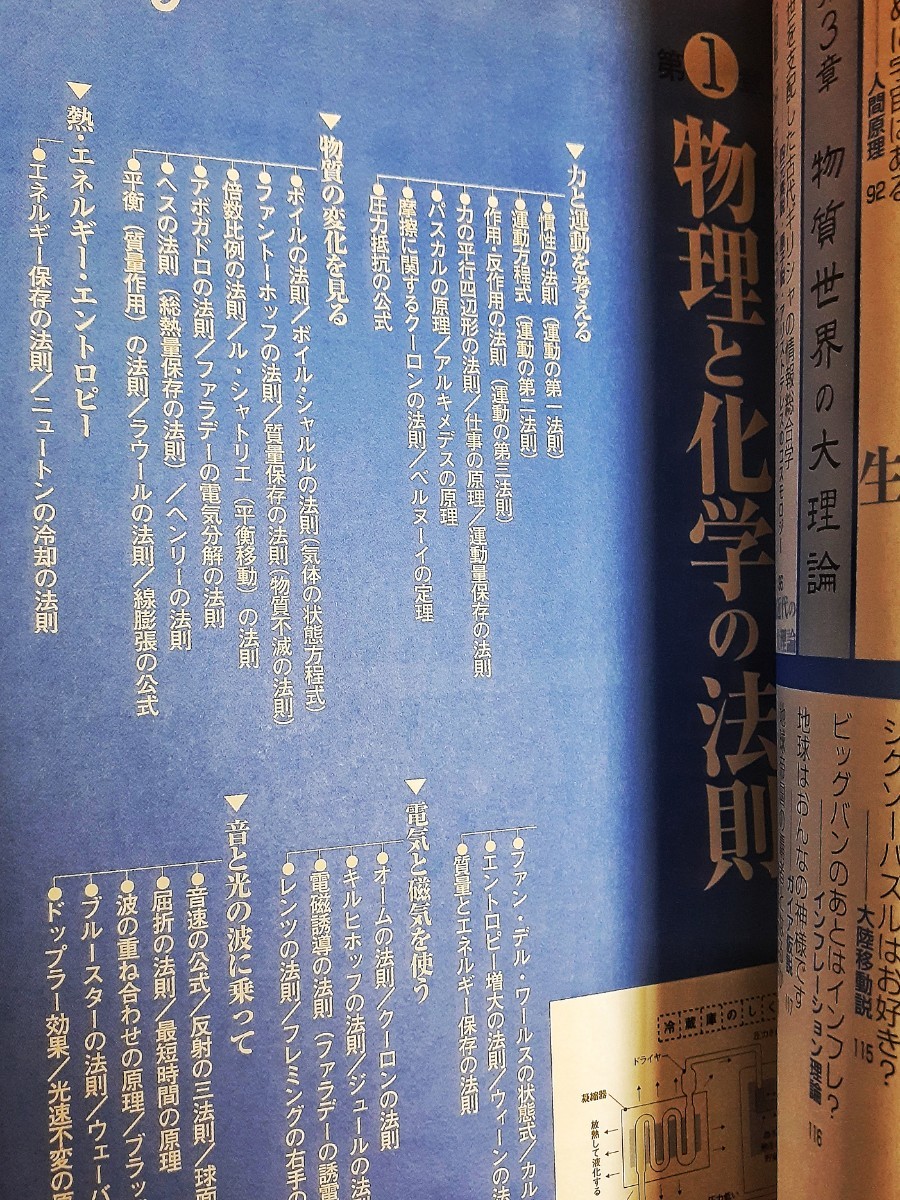 第1 物理と化学の法則
▼力と運動を考える
●慣性の法則（運動の第一法則）
●運動方程式（運動の第二法則）
●作用・反作用の法則（運動の第三法則）
●力の平行四辺形の法則／仕事の原理／運動量保存の法則
●パスカルの原理／アルキメデスの原理
●摩擦に関するクーロンの法則／ベルヌーイの定理
●圧力抵抗の公式
▼物質の変化を見る
●ボイルの法則／ボイル・シャルルの法則（気体の状態方程式）
●ファントーホッフの法則／質量保存の法則（物質不滅の法則）
●倍数比例の法則／ル・シャトリエ（平衡移動）の法則
●アボガドロの法則／ファラデーの電気分解の法則
●ヘスの法則（総熱量保存の法則）／ヘンリーの法則
●平衡（質量作用）の法則／ラウールの法則／線膨張の公式
▼熱・エネルギー・エントロピー
●エネルギー保存の法則／ニュートンの冷却の法則
●ファン・デル・ワールスの状態式／カル
●エントロピー増大の法則／ウィーンの法
●質量とエネルギー保存の法則
▼電気と磁気を使う
●オームの法則／クーロンの法則
●キルヒホッフの法則／ジュールの法
●電磁誘導の法則（ファラデーの誘電
●レンツの法則／フレミングの右手の
▼音と光の波に乗って
●音速の公式／反射の三法則／球面
●屈折の法則／最短時間の原理
●波の重ね合わせの原理／ブラッ
●ブルースターの法則／ウェーバ
●ドップラー効果／光速不変の原
冷蔵庫のしく
ドライヤー
凝縮器
放熱して液化する
人間原理 92
第3章 物質世界の大理論
世を支配した古代ギリシャの情報総合学
シクソーパズルはお好き？
大陸移動説 115
ビッグバンのあとはインフレ？
インフレーション理論 116
地球はおんなの神様です
ガイア仮説 117
生